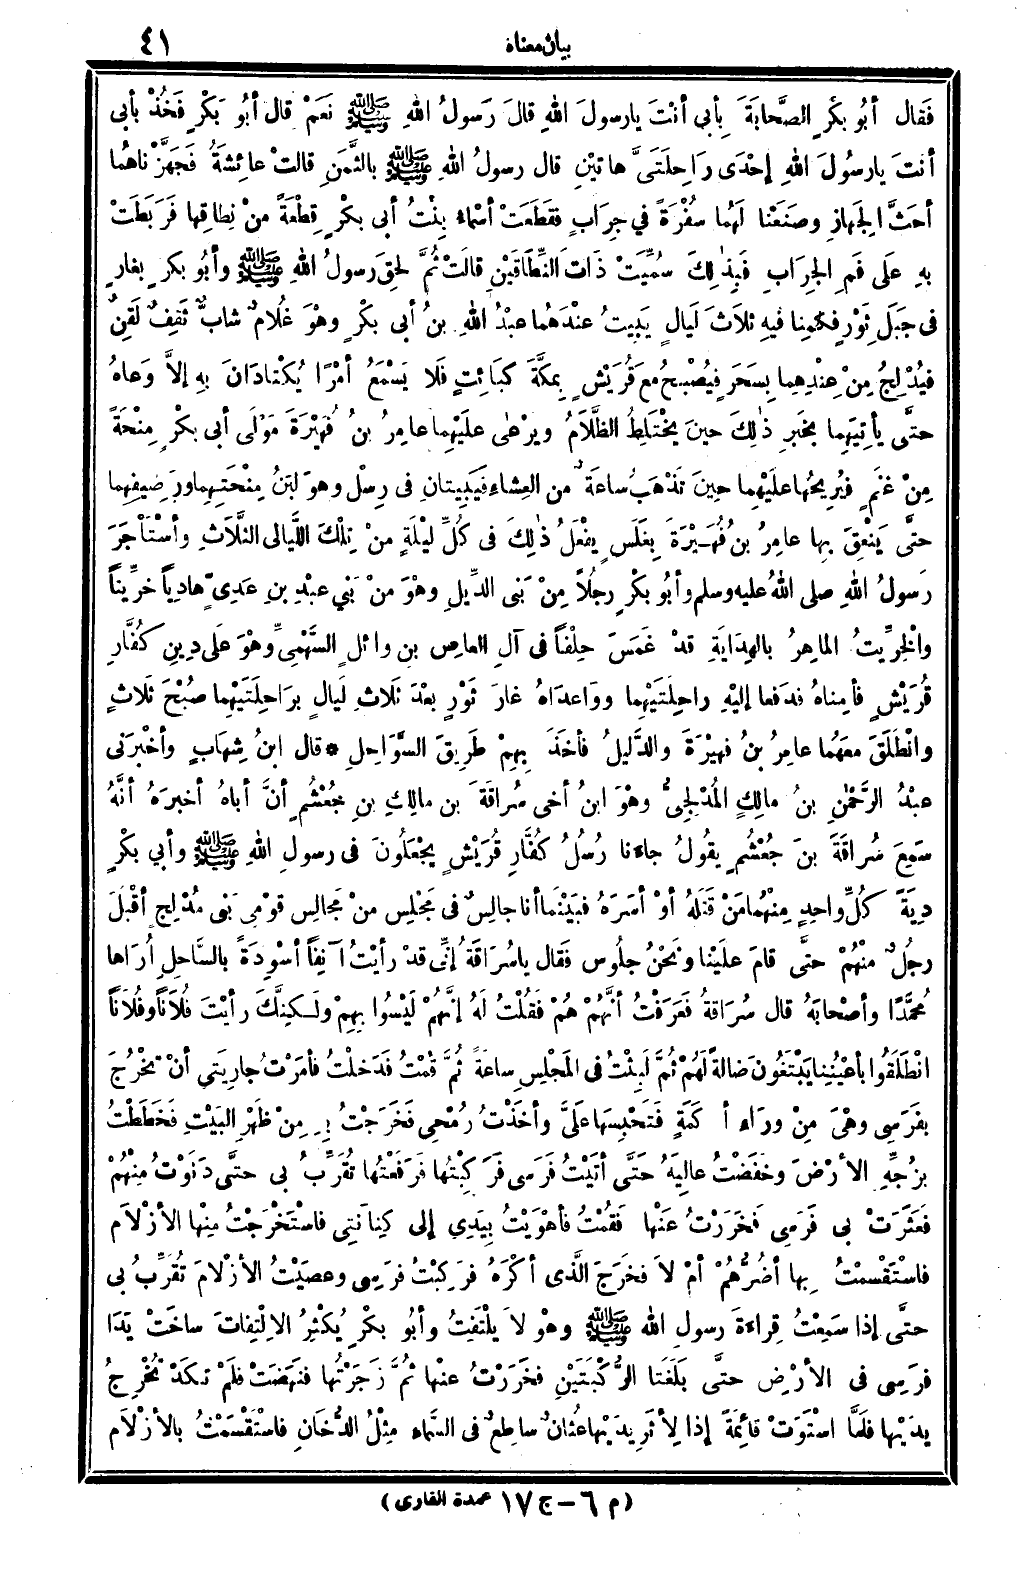 بيان معناه ٤١
فَقال أبُو بَكْرٍ الصَّحابَةَ بِأبي أنْتَ يا رسولَ اللهِ قالَ رَسولُ اللهِ ﷺ نَعَمْ قال أبُو بَكْرٍ فَخُذْ بأبي
أنتَ يا رسُولَ اللهِ إحْدَى رَاحِلَتَيَّ هاتيْنِ قال رسولُ اللهِ ﷺ بالثَّمَنِ قالتْ عائِشةُ فَجَهَّزْناهُما
أحَثَّ الجَهازِ وصَنَعْنا لَهُما سُفْرَةً في جِرابٍ فقَطَعَتْ أسْماءُ بِنْتُ أبي بكْرٍ قِطْعَةً مِنْ نِطاقِها فَرَبَطَتْ
بهِ عَلَى فَمِ الجِرَابِ فَبِذٰلِكَ سُمِّيَتْ ذَاتَ النِّطَاقَيْنِ قالَتْ ثُمَّ لحِقَ رَسولُ اللهِ ﷺ وأبُو بكرٍ بغارٍ
في جَبَلِ ثَوْرٍ فكَمِنا فيهِ ثلاثَ لَيالٍ يَبِيتُ عنْدَهُما عبْدُ اللهِ بنُ أبي بكرٍ وهْوَ غُلامٌ شابٌّ ثَقِفٌ لَقِنٌ
فيُدْلِجُ مِنْ عِنْدِهِما بِسَحَرٍ فيُصْبِحُ مع قُرَيْشٍ بِمكَّةَ كَبائِتٍ فَلا يَسْمَعُ أمْرًا يُكْتادَانِ بهِ إلاَّ وَعاهُ
حتَّى يأتِيَهِما بخَبَرِ ذٰلِكَ حينَ يخْتَلِطُ الظَّلَامُ ويرْعَى علَيْهِما عامِرُ بنُ فُهَيْرَةَ مَوْلَى أبي بكْرٍ مِنْحَةً
مِنْ غَنَمٍ فيُرِيحُها عليْهِما حِينَ تَذْهَبُ ساعةٌ من العِشاءِ فيَبِيتانِ في رِسْلٍ وهوَ لبَنُ مِنْحَتِهِما ورَضِيفِهِما
حتَّى يَنْعِقَ بها عامِرُ بنُ فُهَيْرَةَ بِغَلَسٍ يفْعَلُ ذٰلِكَ في كُلِّ ليْلةٍ منْ تِلْكَ اللَّيالي الثَّلاثِ وأسْتَأْجَرَ
رَسولُ اللهِ صلى اللهُ عليه وسلم وأبُو بكْرٍ رجُلاً مِنْ بَني الدِّيلِ وهْوَ منْ بَني عبْدِ بنِ عَدِيٍّ هادِياً خرِّيتاً
والْخِرِّيتُ الماهِرُ بالهِدَايَةِ قدْ غَمَسَ حِلْفاً في آلِ العاصِ بنِ وائلٍ السَّهْمِيِّ وهْوَ عَلَى دِينِ كُفَّارِ
قُرَيْشٍ فأمِناهُ فدَفعا إليْهِ راحِلتَيْهِما وواعَدَاهُ غارَ ثَوْرٍ بعْدَ ثَلَاثِ لَيالٍ برَاحِلَتَيْهِما صُبْحَ ثَلاثٍ
وانْطَلَقَ معَهُما عامِرُ بنُ فُهيْرَةَ والدَّليلُ فأخَذَ بِهِمْ طَرِيقَ السَّوَاحِلِ * قال ابنُ شِهابٍ وأخْبرَنِي
عبْدُ الرَّحْمٰنِ بنُ مالِكٍ المُدْلِجِيُّ وهْوَ ابنُ أخي سُراقَةَ بنِ مالِكِ بنِ جُعْشُمٍ أنَّ أباهُ أخبرَهُ أنَّهُ
سَمِعَ سُرَاقَةَ بنَ جُعْشُمٍ يقُولُ جاءَنا رُسُلُ كُفَّارِ قُرَيْشٍ يجْعَلُونَ في رسولِ اللهِ ﷺ وأبي بكْرٍ
دِيَةَ كُلِّ واحِدٍ مِنْهُما مَنْ قَتَلَهُ أوْ أسَرَهُ فبَيْنَما أنا جالِسٌ في مَجْلِسٍ منْ مَجالِسِ قوْمِي بَني مُدْلِجٍ أقْبَلَ
رجُلٌ مِنْهُمْ حتَّى قامَ علَيْنا ونَحْنُ جلُوسٌ فقال يا سُرَاقَةُ إنِّي قدْ رأيْتُ آنِفاً أسْوِدَةً بالسَّاحِلِ أُرَاها
مُحمَّدًا وأصْحابَهُ قال سُرَاقةُ فعَرَفْتُ أنَّهُمْ هُمْ فَقُلْتُ لَهُ إنَّهُمْ لَيْسُوا بِهِمْ ولَكِنَّكَ رأيْتَ فُلَاناً وفُلَاناً
انْطَلَقُوا بأعْيُنِنا يَبْتَغُونَ ضالةً لَهُمْ ثُمَّ لَبِثْتُ في المَجْلِسِ ساعَةً ثُمَّ قُمْتُ فدَخلْتُ فأمَرْتُ جارِيَتي أنْ تَخْرُجَ
بفَرَسِي وهْيَ مِنْ ورَاءِ أكَمَةٍ فَتَحْبِسَها عَلَيَّ وأخَذْتُ رُمْحِي فَخَرَجْتُ بِهِ مِنْ ظَهْرِ البَيْتِ فَخَطَطْتُ
بزُجِّهِ الأرْضَ وخفَضْتُ عالِيَهُ حَتَّى أتَيْتُ فَرَسي فَرَكِبْتُها فرَفَعْتُها تُقَرِّبُ بي حتَّى دَنَوْتُ مِنْهُمْ
فعَثَرَتْ بي فَرَسِي فَخَرَرْتُ عَنْها فَقُمْتُ فأهْوَيْتُ بِيَدِي إلى كِنانَتِي فاسْتَخْرَجْتُ مِنْها الأزْلَامَ
فاسْتَقْسمْتُ بِها أضُرُّهُمْ أمْ لاَ فخَرَجَ الَّذي أكْرَهُ فرَكِبْتُ فرَسِي وعصَيْتُ الأزْلَامَ تُقَرِّبُ بي
حتَّى إذا سَمِعْتُ قِراءَةَ رسولِ اللهِ ﷺ وهْو لاَ يلْتَفِتُ وأبُو بكرٍ يُكْثِرُ الالْتِفاتَ ساخَتْ يَدَا
فرَسِي في الأرْضِ حتَّى بَلَغَتا الرُّكْبَتَيْنِ فخَرَرْتُ عنْها ثُمَّ زَجَرْتُها فنَهَضَتْ فلَمْ تَكَدْ تُخْرِجُ
يدَيْها فلَمَّا اسْتَوَتْ قائِمَةً إذا لِأثَرِ يدَيْها عُثانٌ ساطِعٌ في السَّماءِ مِثْلُ الدُّخانِ فاسْتَقْسَمْتُ بالأزْلَامِ
(م ٦ – ج ١٧ عمدة القاري)